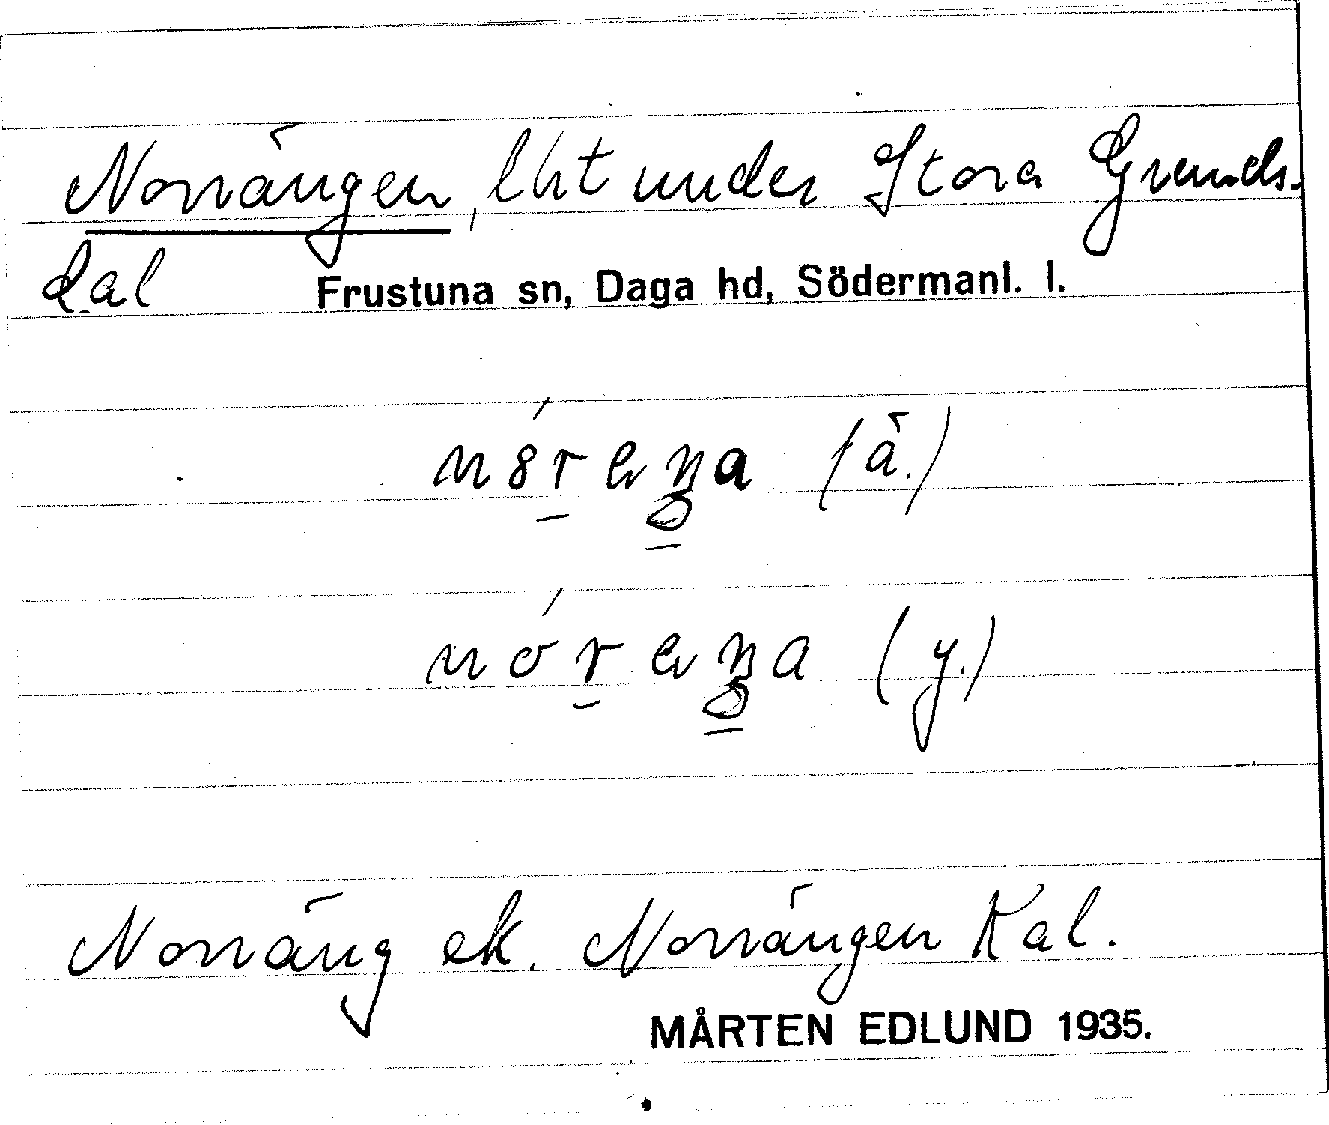 Norrängen, lht under Stora Grunds-
dal Frustuna sn, Daga hd, Södermanl. l.
(ä.)
(y.)
Norräng ek. Norrängen Kal.
MÅRTEN EDLUND 1935.